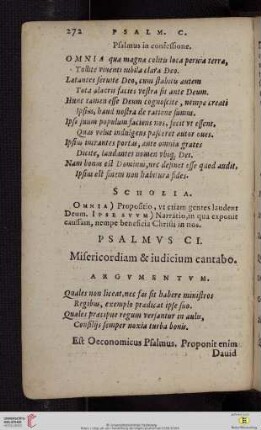 272 PSALM. C.
Psalmus in confessione.
OMNIA qua magna colitis loca peruia terra,
Tollite vouentes iubila clara Deo.
Latantes seruite Deo, cum
Tota alacris facies vestra sit ante Deum.
Hunc tamen esse Deum cognoscite, nempe creati
Ipsius, haud nostra de ratione sumus.
Ipse suum populum faciens nos, fecit et esse
Quas velut indulgens pasceret auter oues.
Ipsius intrantes portas, ante omnia grates
Dicite, laudantes nomen vbiq, Dei.
Nam bonus est Dominus, nec desinet esse quod audit,
Ipsius est finem non habitura fides.
SCHOLIA.
OMNIA) Propositio, vt etiam gentes laudent
Deum. IPSE SVVM) Narratio, in qua exponit
caussam, nempe beneficia Christi in nos.
PSALMVS CI.
Misericordiam & iudicium cantabo.
ARGVMENTVM.
Quales non liceat, nec fas sit habere ministros
Regibus, exemplo prædicat ipse suo.
Quales præcipue regum versantur in aula,
Consilijs semper noxia turba bonis.
Est Oeconomicus Psalmus. Proponit enim
Dauid